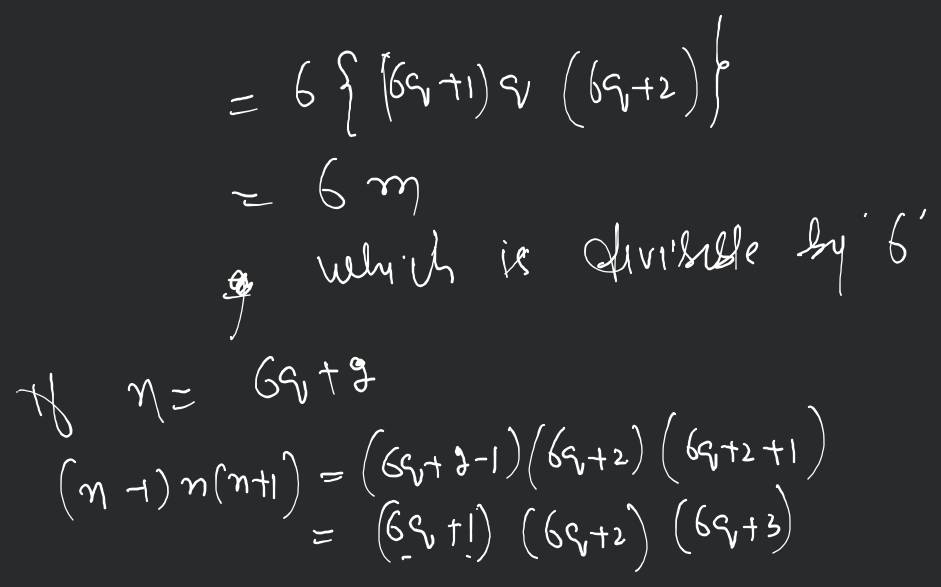 = 6 { (6q+1) q (6q+2) }
= 6 m
which is divisible by '6'
If n = 6q+2
(n-1) n (n+1) = (6q+2-1) (6q+2) (6q+2+1)
= (6q+1) (6q+2) (6q+3)